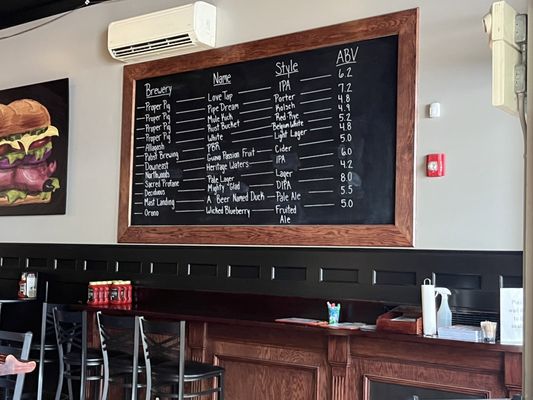 Brewery Name Style ABV
Proper Pig Love Tap IPA 6.2
Proper Pig Pipe Dream Porter 7.2
Proper Pig Kolsch 4.8
Proper Pig Rust Bucket Red-Rye 4.9
Proper Pig 5.2
Allagash White Belgian White
Pabst Brewing PBR Light Lager 4.8
Downeast Guava Passion Fruit Cider 5.0
Northwoods Heritage Waters IPA 6.0
Sacred Profane Pale Lager Lager 4.2
Deciduous DIPA 8.0
Mast Landing A Beer Named Duck Pale Ale 5.5
Orono Wicked Blueberry Fruited 5.0
Ale
Please